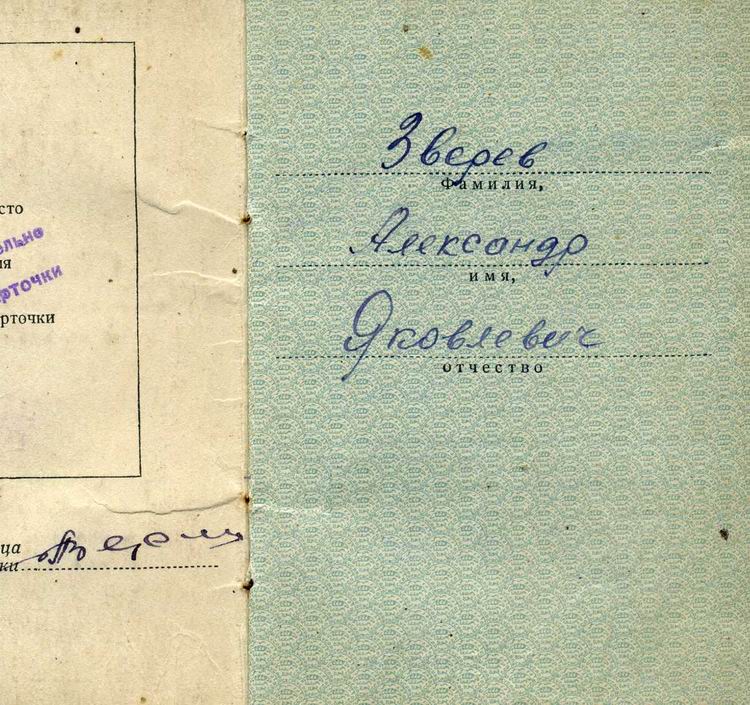 сто
ельно
ия
рточки
рточки
ца
ки
Зверев
Фамилия,
Александр
имя,
Яковлевич
отчество